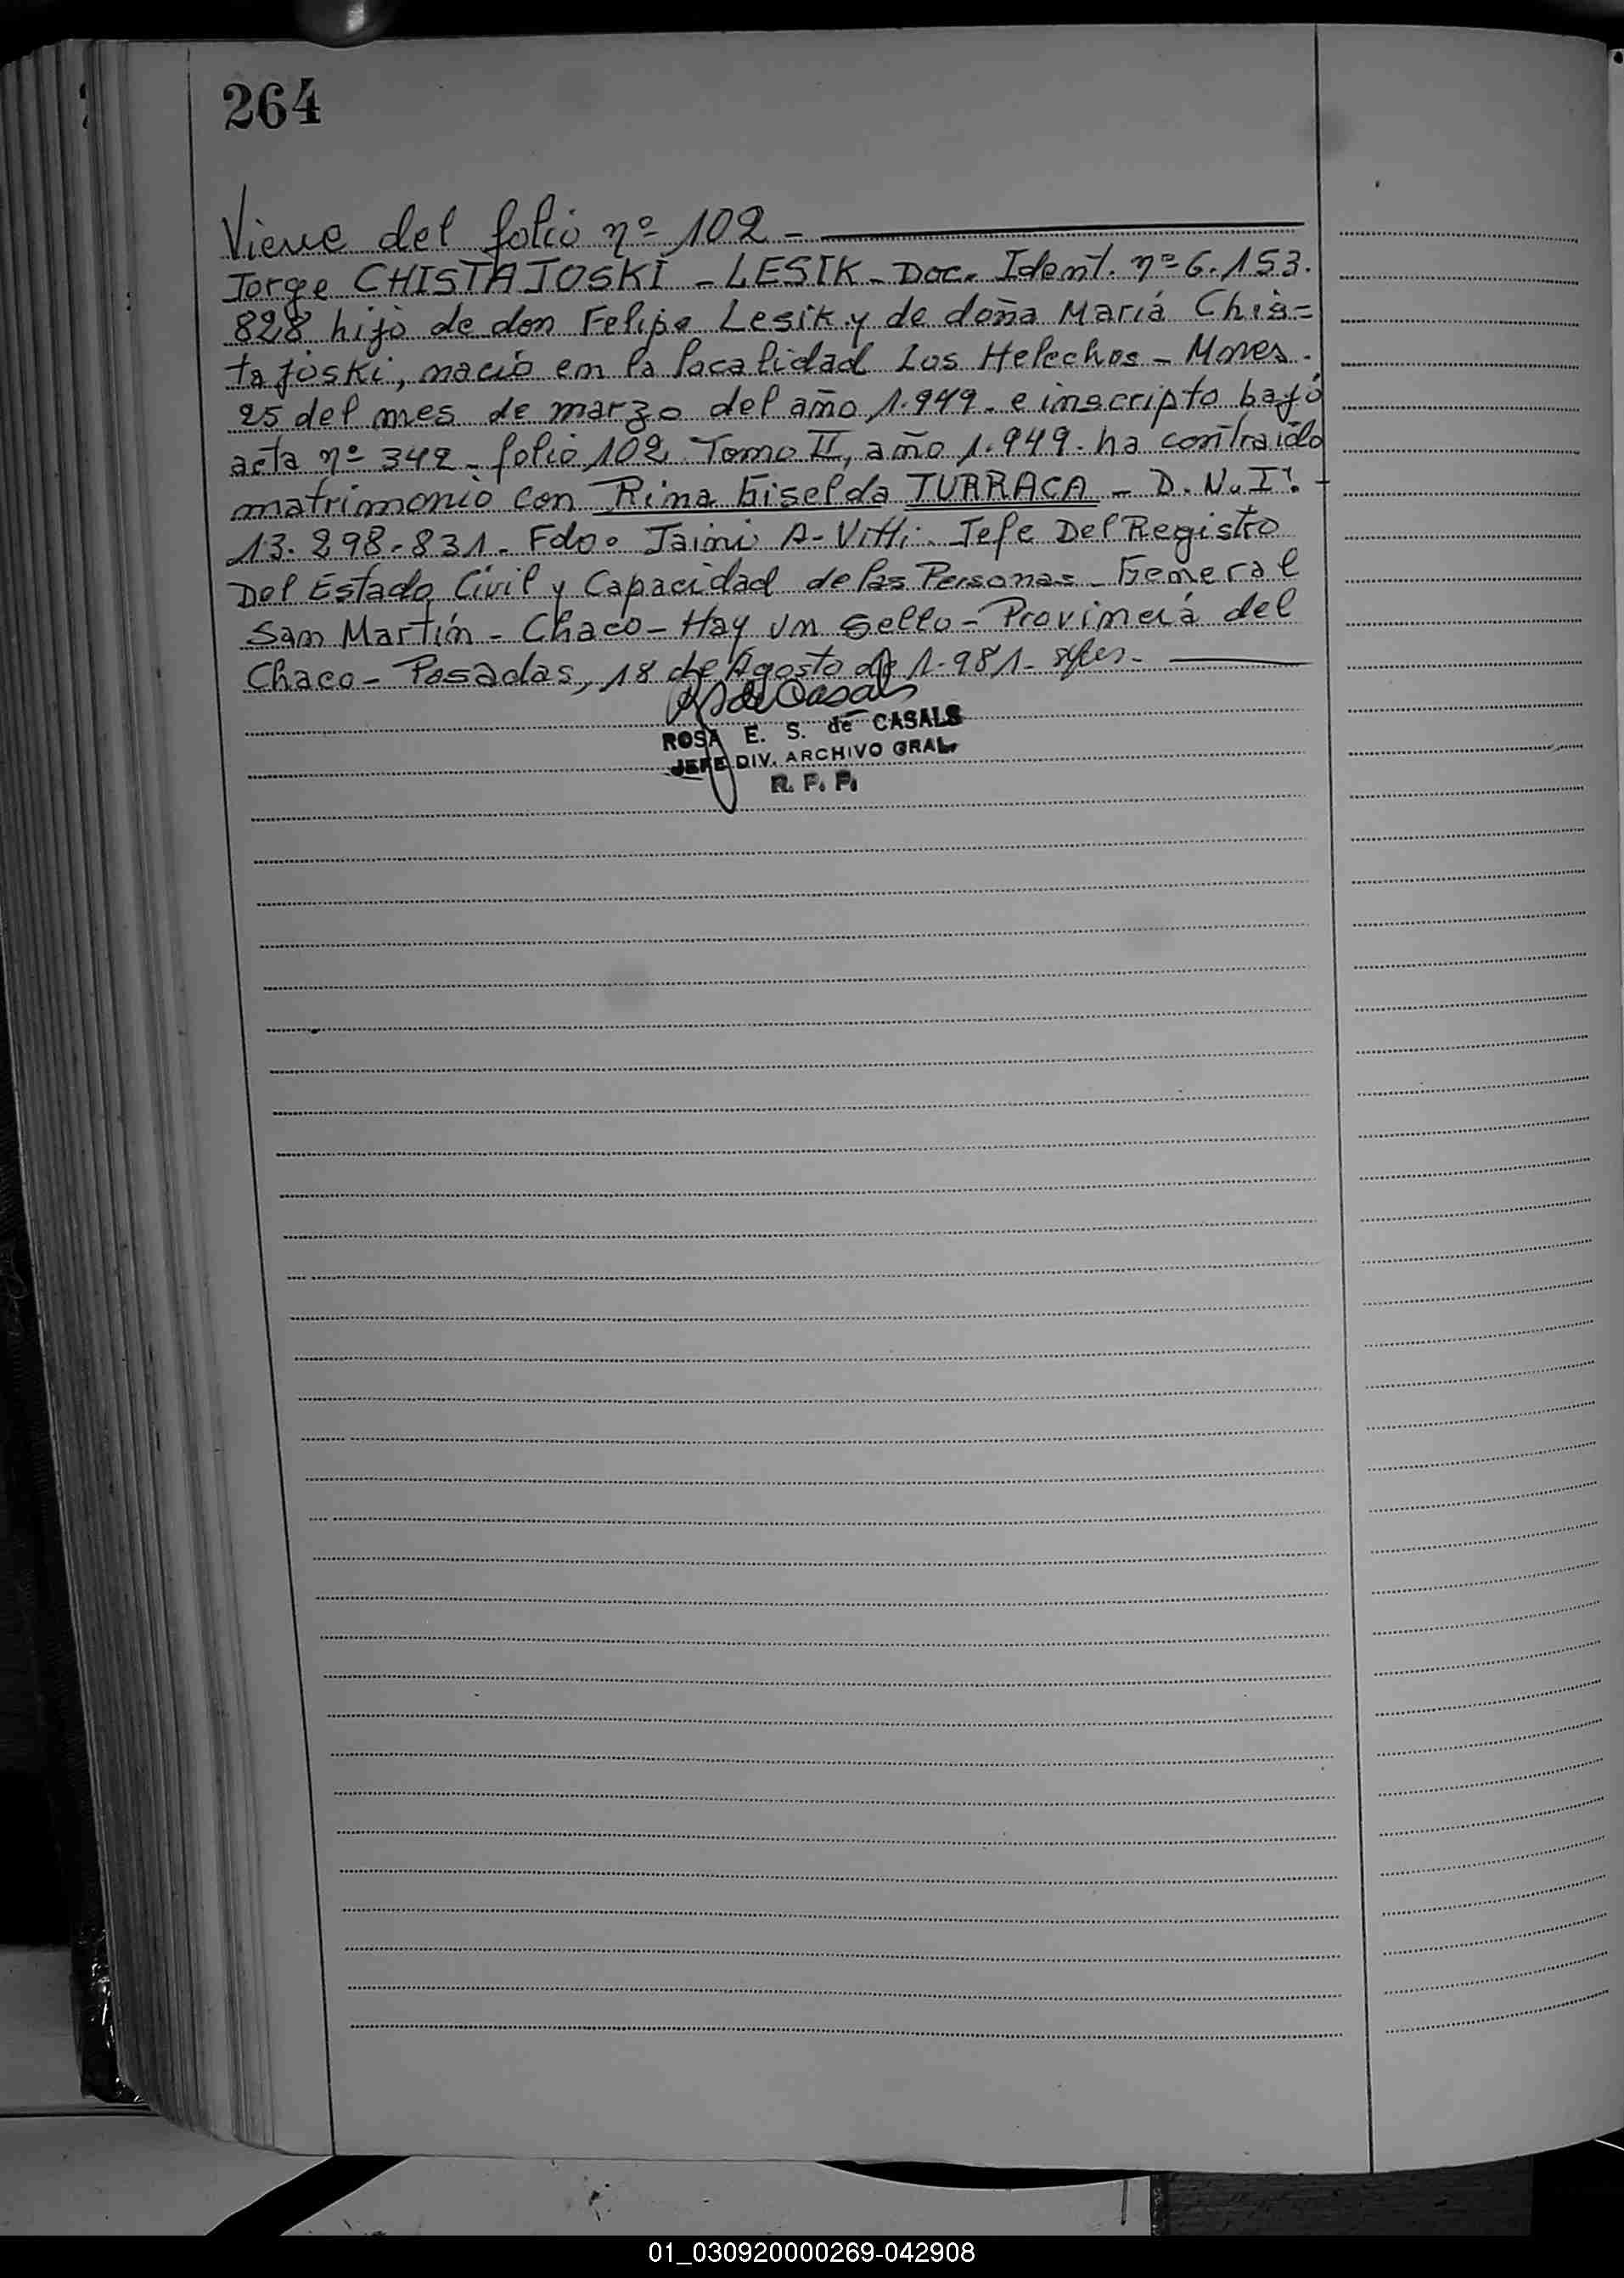 264
Viene del folio nº 102 -
Jorge CHISTAJOSKI - LESIK - Doc. Ident. nº 6.153.
828 hijo de don Felipe Lesik y de doña María Chis=
tajoski, nació en la localidad Los Helechos - Mnes.
25 del mes de marzo del año 1.949. e inscripto bajo
acta nº 342 - folio 102 Tomo II, año 1.949. ha contraido
matrimonio con Rina Giselda TURRACA - D.N.I:
13.298.831. Fdo. Jaimi A. Vitti. Jefe Del Registro
Del Estado Civil y Capacidad de las Personas - General
San Martín - Chaco - Hay un sello - Provincia del
Chaco - Posadas, 18 de Agosto de 1.981.
ROSA E. S. de CASALS
JEFE DIV. ARCHIVO GRAL.
R. P. P.
01_030920000269-042908